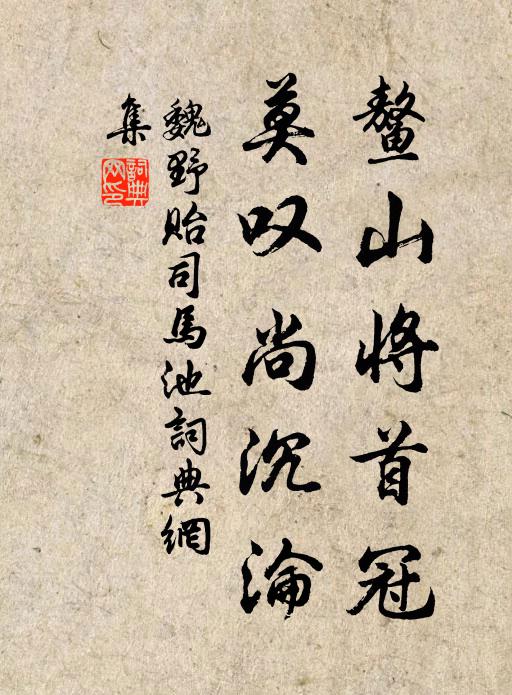 鳌山将首冠
莫叹尚沉沦
魏野貽司馬池詞典網
集
詞典
网印